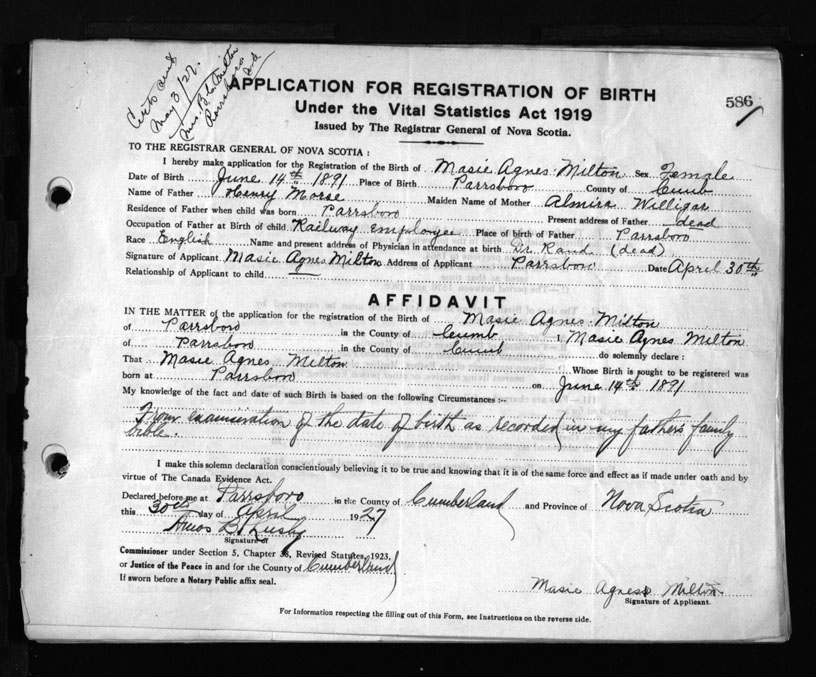 Certs sent
May 3/27.
Mrs B. L. Milton
Parrsboro
N.S.
APPLICATION FOR REGISTRATION OF BIRTH
586
Under the Vital Statistics Act 1919
Issued by The Registrar General of Nova Scotia.
TO THE REGISTRAR GENERAL OF NOVA SCOTIA :
I hereby make application for the Registration of the Birth of Masie Agnes Milton Sex Female
Date of Birth June 14th 1891 Place of Birth Parrsboro County of Cumb
Name of Father Henry Morse Maiden Name of Mother Almira Willigar
Residence of Father when child was born Parrsboro Present address of Father dead
Occupation of Father at Birth of child Railway Employee Place of birth of Father Parrsboro
Race English Name and present address of Physician in attendance at birth Dr. Rand (dead)
Signature of Applicant Masie Agnes Milton Address of Applicant Parrsboro Date April 30th
Relationship of Applicant to child —
AFFIDAVIT
IN THE MATTER of the application for the registration of the Birth of Masie Agnes Milton
of Parrsboro in the County of Cumb I, Masie Agnes Milton
of Parrsboro in the County of Cumb do solemnly declare :
That Masie Agnes Milton Whose Birth is sought to be registered was
born at Parrsboro on June 14th 1891
My knowledge of the fact and date of such Birth is based on the following Circumstances :-
From examination of the date of birth as recorded in my fathers family
bible.
I make this solemn declaration conscientiously believing it to be true and knowing that it is of the same force and effect as if made under oath and by
virtue of The Canada Evidence Act.
Declared before me at Parrsboro in the County of Cumberland and Province of Nova Scotia
this 30th day of April 1927
Amos B. Lusby
Signature of
Commissioner under Section 5, Chapter 38, Revised Statutes, 1923,
or Justice of the Peace in and for the County of Cumberland
If sworn before a Notary Public affix seal.
Masie Agnes Milton
Signature of Applicant.
For Information respecting the filling out of this Form, see Instructions on the reverse side.